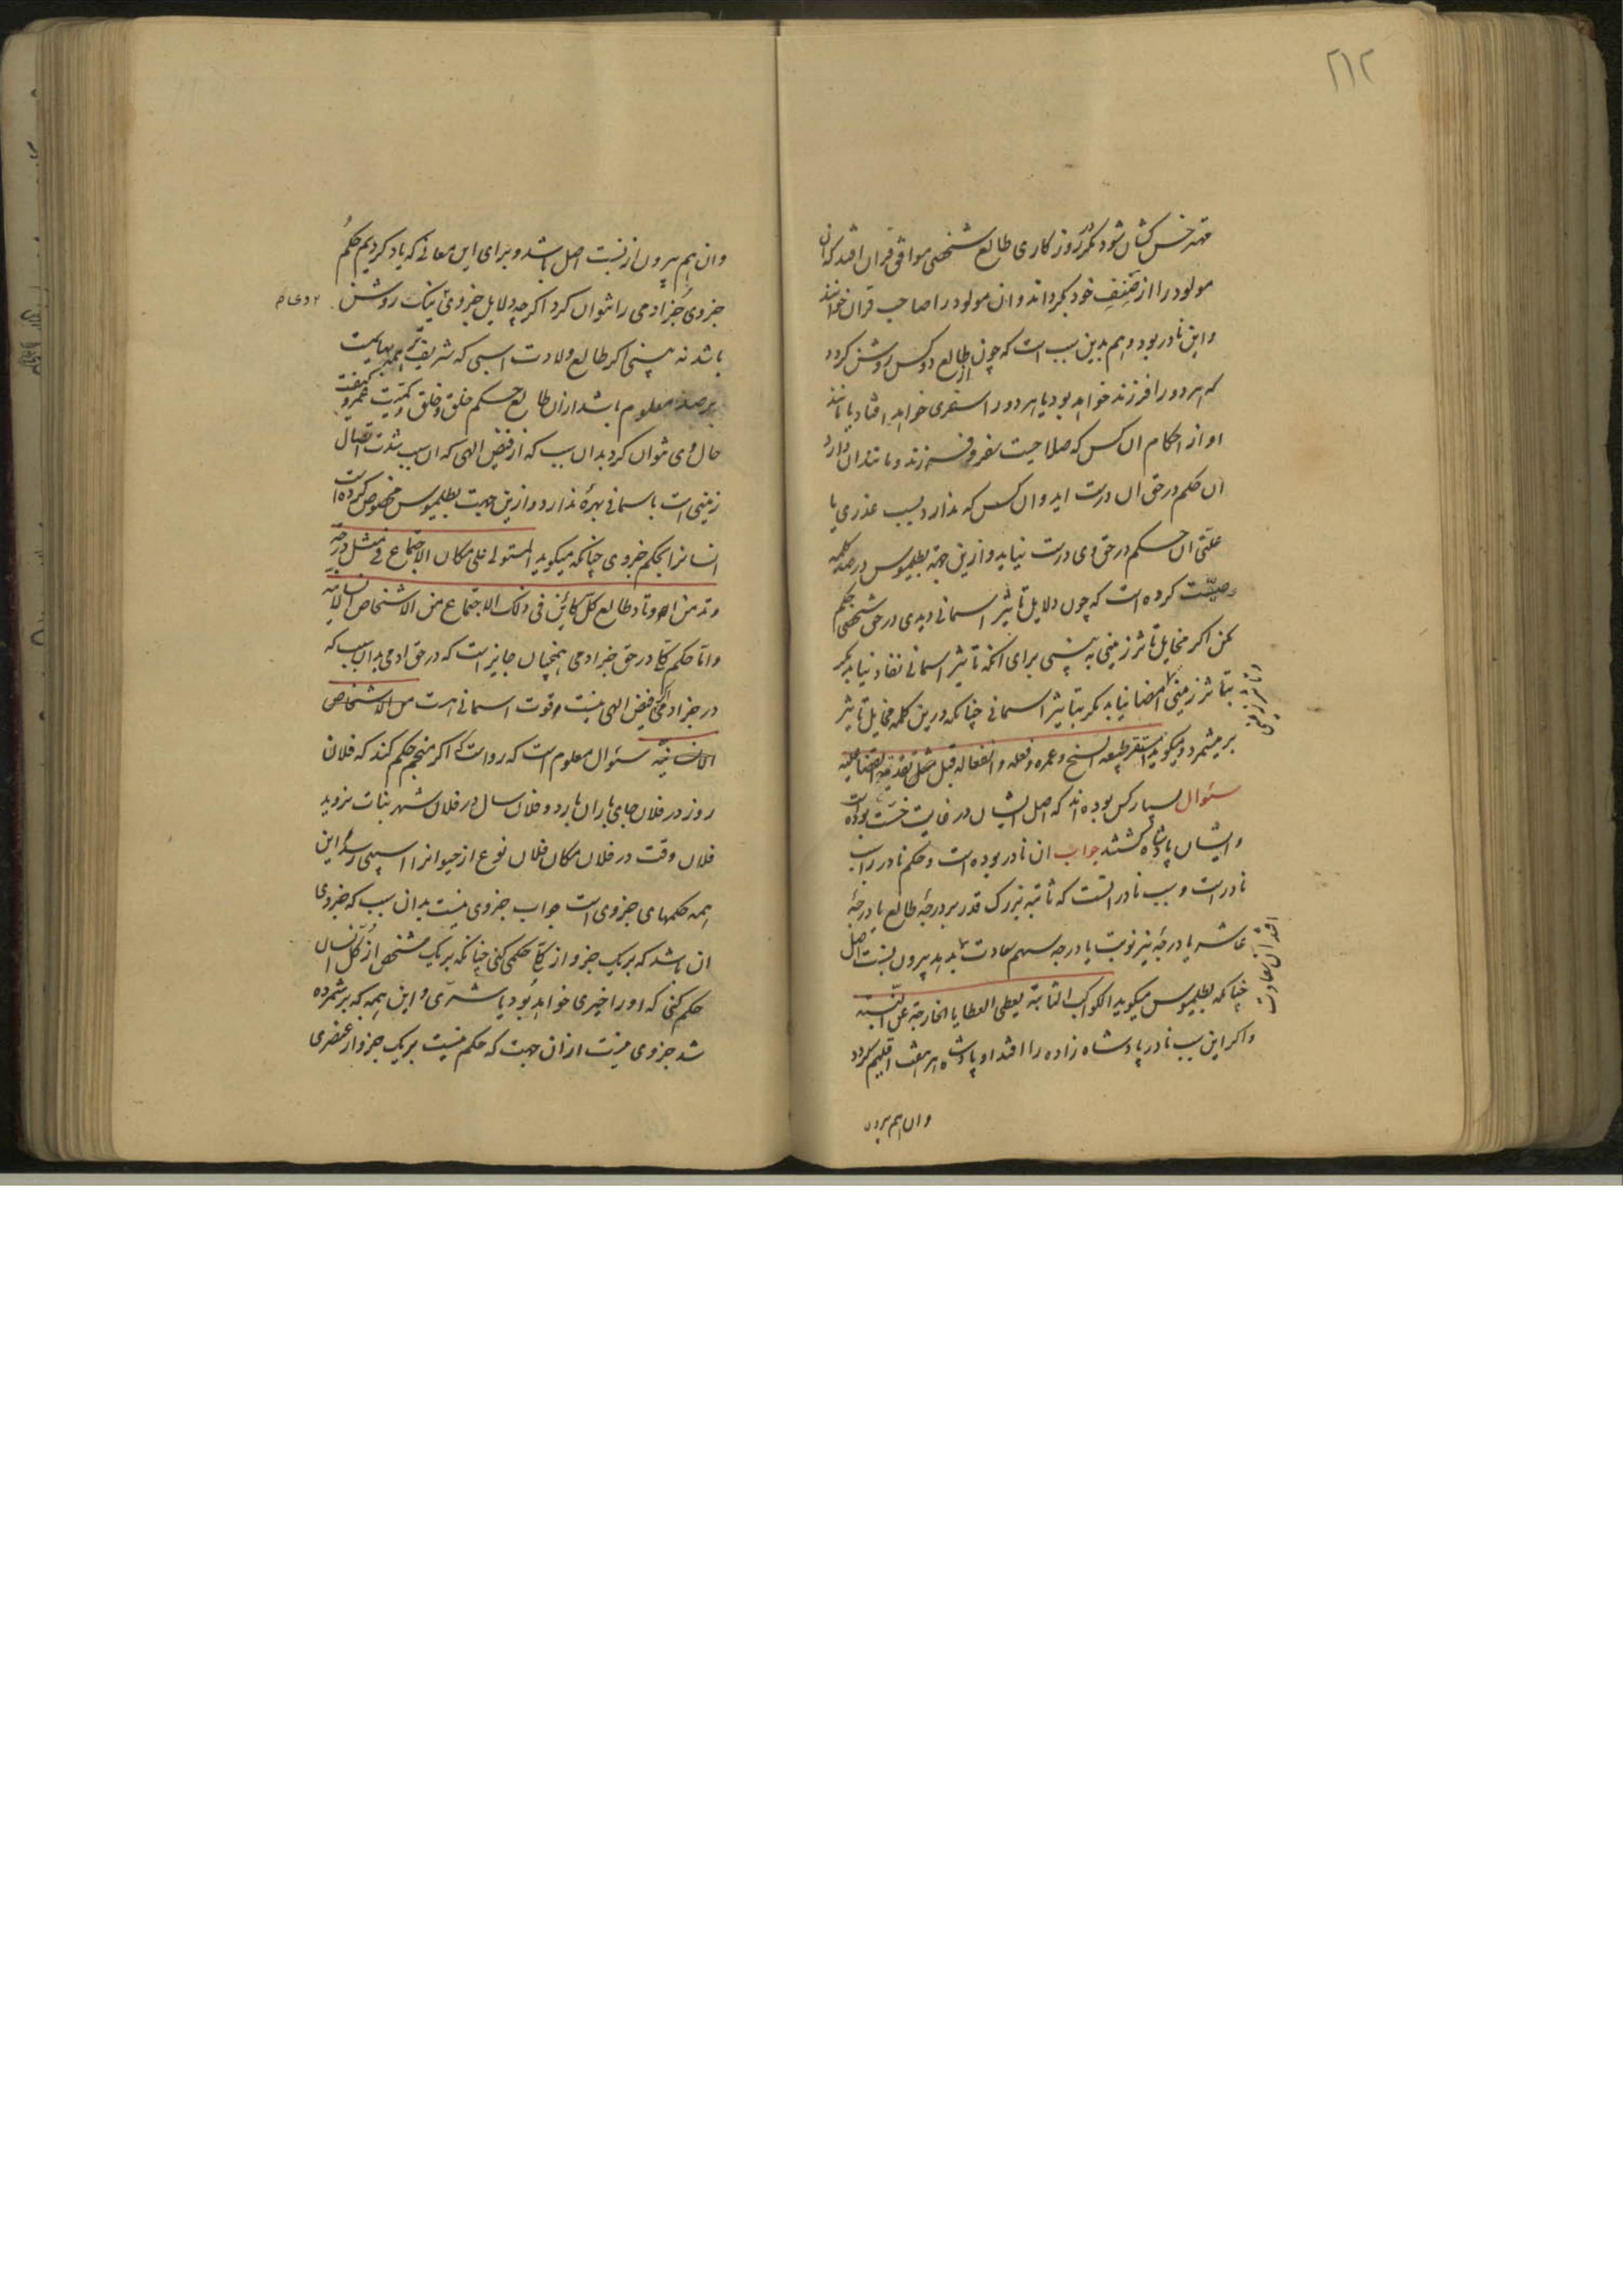 ۲۱۲
مهتر خس کشان شود مکر در روز کاری طالع شخصی موافق قران افتد که ان
مولود را از صنف خود بکرداند و ان مولود را صاحب قران خوانند
و این نادر بود و هم بدین سبب است که چون از طالع دو کس روشن کردد
که هر دو را فرزند خواهد بود یا هر دو را سفری خواهد افتاد یا مانند
او از احکام ان کس که صلاحیت سفر و فرزند و مانند ان دارد
ان حکم در حق ان درست اید و ان کس که ندارد بسبب عذری یا
علتی ان حکم در حق وی درست نیاید و ازین جهة بطلمیوس در صد کلمه
وصیت کرده است که چون دلایل تاثیر اسمانی دیدی در حق شخصی حکم
مکن اکر مخایل تاثر زمینی نه بینی برای انکه تاثیر اسمانی نفاد نیابد مکر
بتاثر زمینی امضا نیابد مکر بتاثیر اسمانی چنانکه درین کلمه مخایل تاثیر
بر میشمرد و میکوید استقر طبیعه السنخ و عمره و فعله و انفعاله قبل تقدمة القضا علیه
سئوال بسیار کس بوده اند که اصل ایشان در غایت خست بوده است
و ایشان پادشاه کشتند جواب ان نادر بوده است و حکم نادر را سبب
نادرست و سبب نادر انست که ثابته بزرک قدر بر درجهٔ طالع یا درجهٔ
عاشر یا درجهٔ نیر نوبت یا درجه سهم سعادت بدهد بیرون نسبت اصل
چنانکه بطلمیوس میکوید الکواکب الثابتة یعطی العطایا الخارجة عن النسبة
و اکر این سبب نادر پادشاه زاده را افتد او پادشاه هر هفت اقلیم کردد
وان هم بیرون
وان هم بیرون از نسبت اصل باشد و برای این معانی که یاد کردیم حکم
جزوی جز ادمی را نتوان کرد اکر چه دلایل جزوی نیک روشن
باشد نه بینی اکر طالع ولادت اسبی که شریف تر همه بهایمست
برصد معلوم باشد از ان طالع حکم خلق و خلق و کمیت عمر و کیفیت
حال وی نتوان کرد بدان سبب که از فیض الهی که ان سبب شدت اتصال
زمینی است باسمانی بهرهٔ ندارد و ازین جهت بطلمیوس مخصوص کرده است
انسانرا بحکم جزوی چنانکه میکوید المستولی علی مکان الاجتماع فی مثل درجة
وتد من اوتاد طالع کل کائن فی ذلک الاجتماع من الاشخاص الانسانیة
و اما حکم کلی در حق جز ادمی همچنان جایز است که در حق ادمی بدان سبب که
در جز ادمی اکر فیض الهی نیست قوت اسمانی هست من الاشخاص
الانسانیة سئوال معلوم است که رواست که اکر منجم حکم کند که فلان
روز در فلان جای باران بارد و فلان سال در فلان شهر نبات نروید
فلان وقت در فلان مکان فلان نوع از حیوانرا اسیبی رسد و این
همه حکمهای جزوی است جواب جزوی نیست بدان سبب که جزوی
ان باشد که بر یک جزو از کلی حکمی کنی چنانکه بر یک شخص از کل انسان
حکم کنی که او را خیری خواهد بود یا شری و این همه که بر شمرده
شد جزوی نیست از ان جهت که حکم نیست بر یک جزو از عنصری